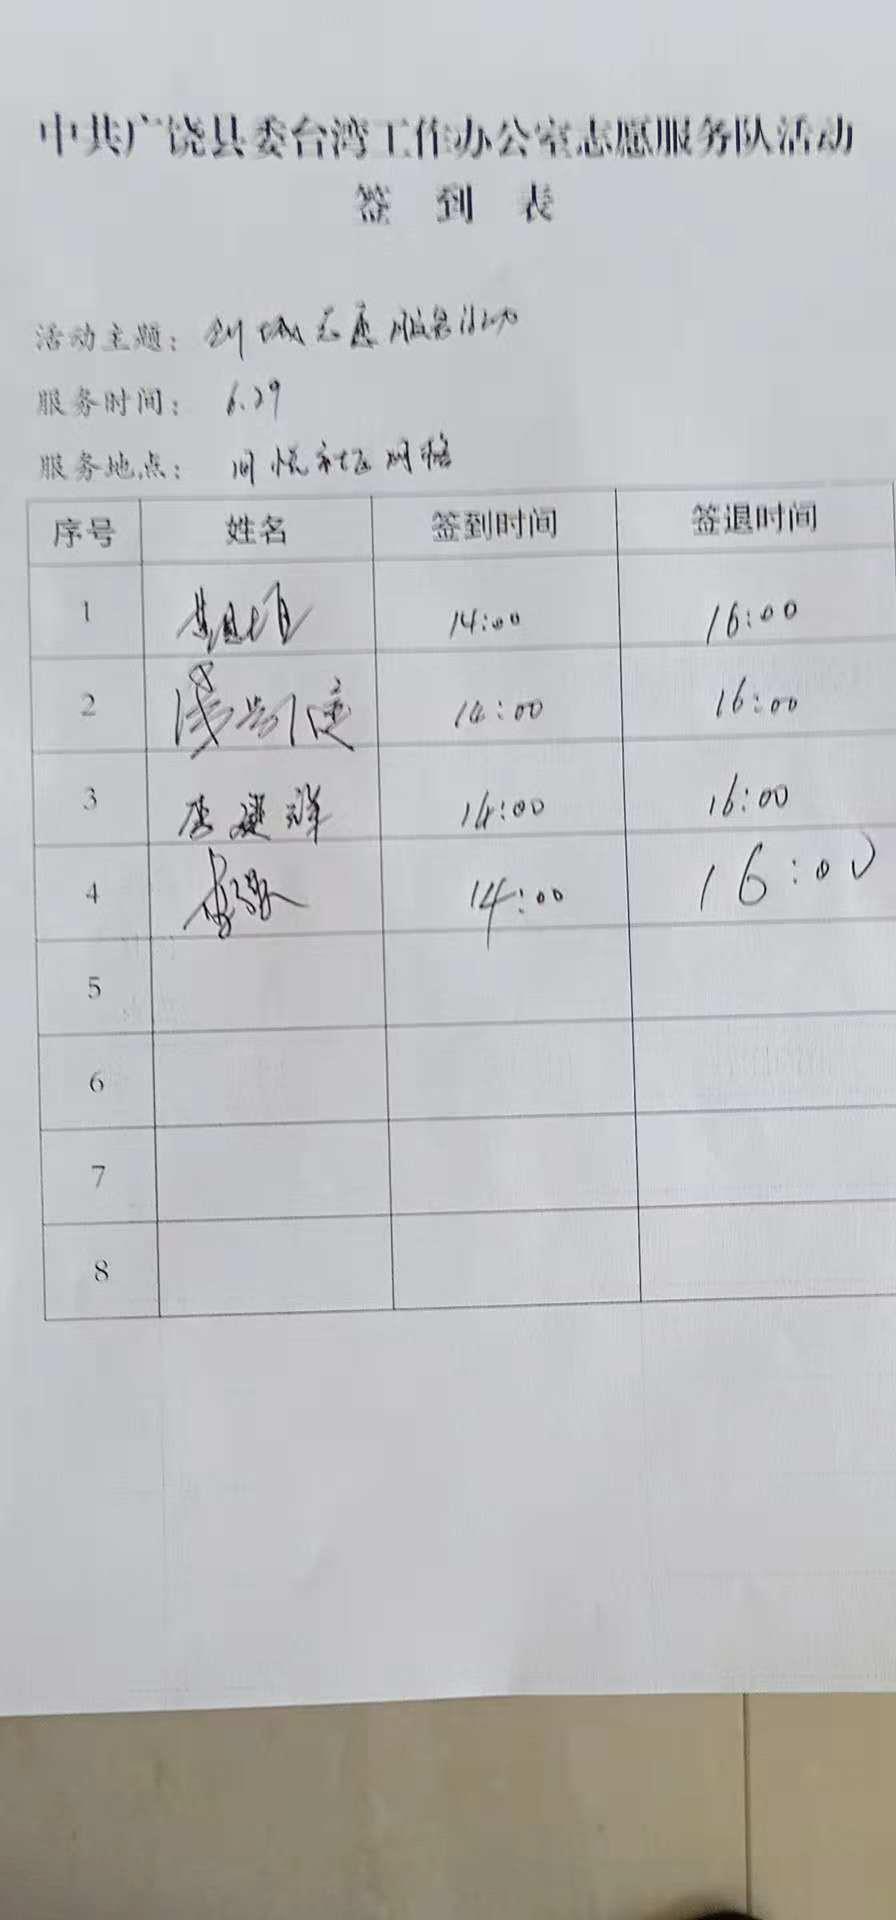 中共广饶县委台湾工作办公室志愿服务队活动
签 到 表
活动主题：创城志愿服务活动
服务时间：6.29
服务地点：悦社区网格
序号 姓名 签到时间 签退时间
1 14:00 16:00
2 14:00 16:00
3 李建祥 14:00 16:00
4 14:00 16:00
5
6
7
8